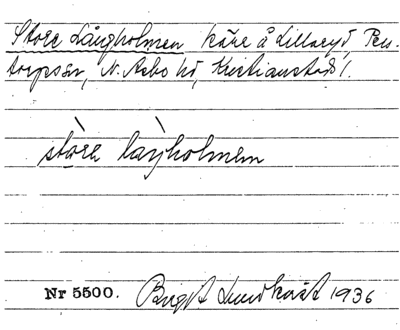 Store Långholmen kärr å Lillaryd, Per-
torpssn, N. Åsbo hd, Kristianstads l.
stòre làŋholmen
Nr 5500. Birgit Lundkvist 1936